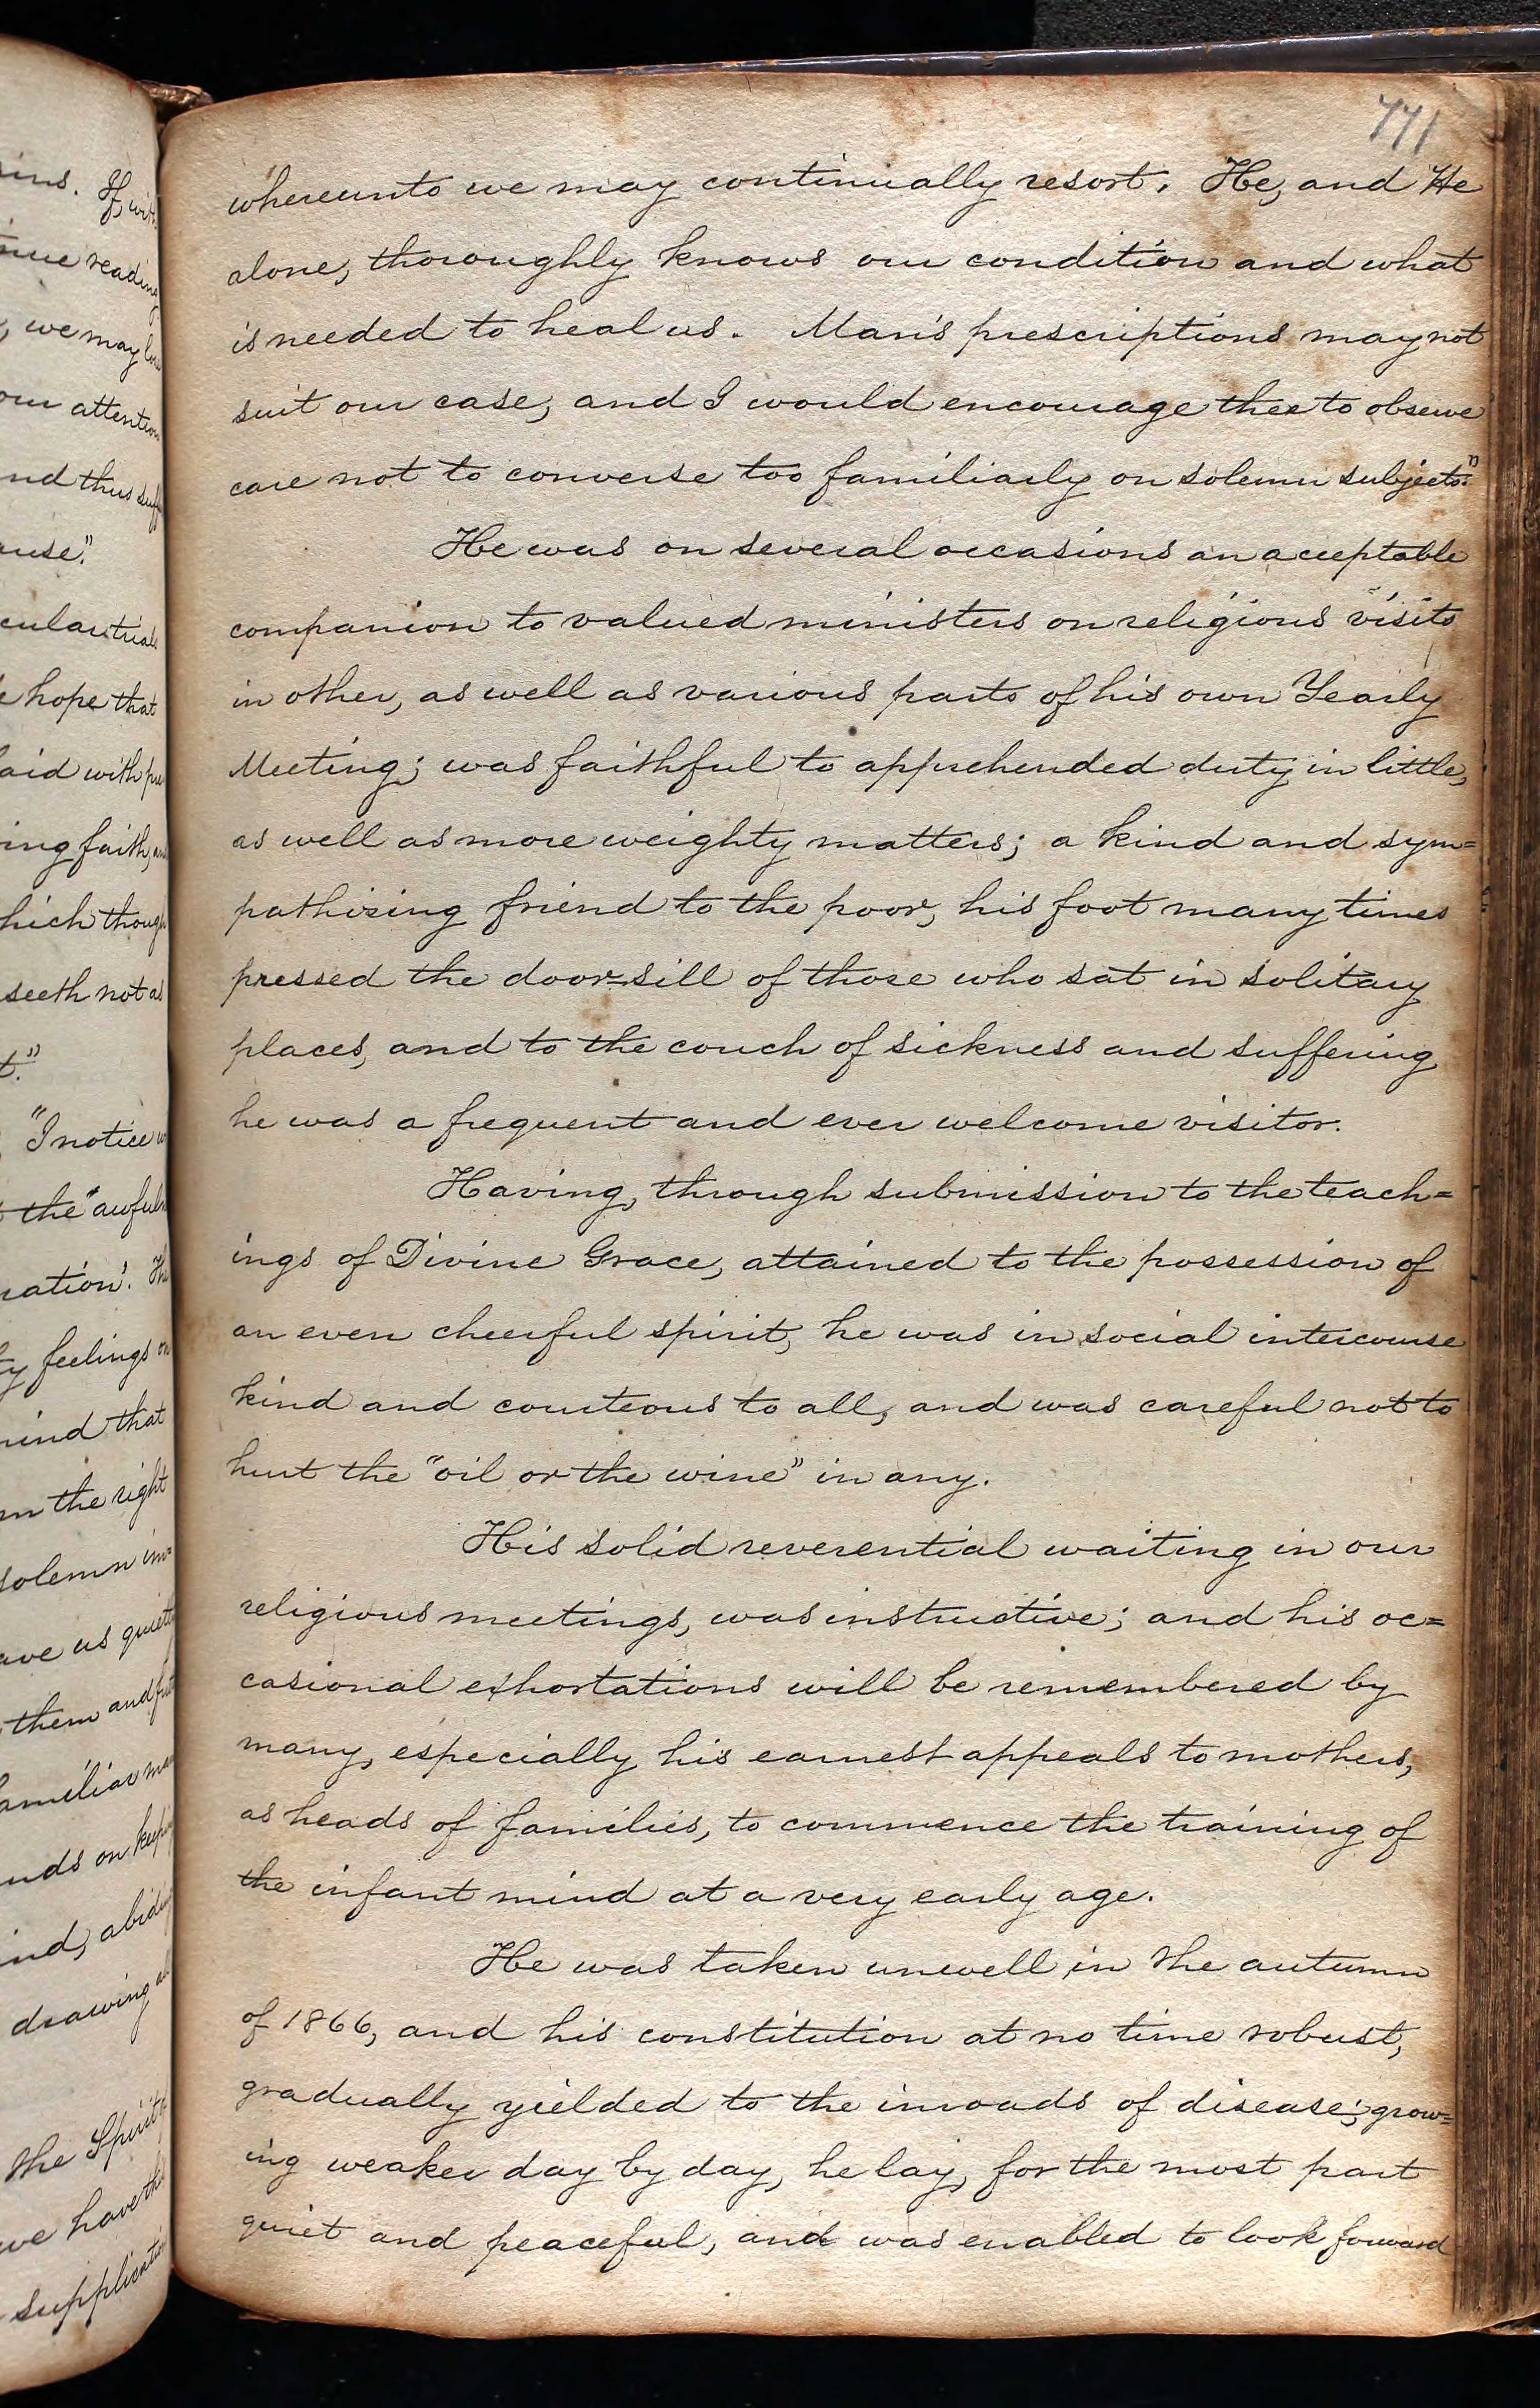 sins. If, with
reading
, we may
our attention
and thus
cause".
trials
hope that
aid with
ing faith,
which though
seeth not as
t."
"I notice
the "awful
ation'.
feelings
mind that
the right
solemn im=
have us quiet
them and
familiar
on
ind,
drawing
the Spirit
we have
supplication
771
whereunto we may continually resort. He, and He
alone, thoroughly knows our condition and what
is needed to heal us. Man's prescriptions may not
suit our case, and I would encourage thee to observe
care not to converse too familiarly on solemn subjects."
He was on several occasions an acceptable
companion to valued ministers on religious visits
in other, as well as various parts of his own Yearly
Meeting; was faithful to apprehended duty in little,
as well as more weighty matters; a kind and sym=
pathising friend to the poor, his foot many times
pressed the door-sill of those who sat in solitary
places, and to the couch of sickness and suffering
he was a frequent and ever welcome visitor.
Having, through submission to the teach=
ings of Divine Grace, attained to the possession of
an even cheerful spirit, he was in social intercourse
kind and courteous to all, and was careful not to
hurt the "oil or the wine" in any.
His solid reverential waiting in our
religious meetings, was instructive; and his oc=
casional exhortations will be remembered by
many, especially his earnest appeals to mothers,
as heads of families, to commence the training of
the infant mind at a very early age.
He was taken unwell in the autumn
of 1866, and his constitution at no time robust,
gradually yielded to the inroads of disease; grow=
ing weaker day by day, he lay, for the most part
quiet and peaceful, and was enabled to look forward